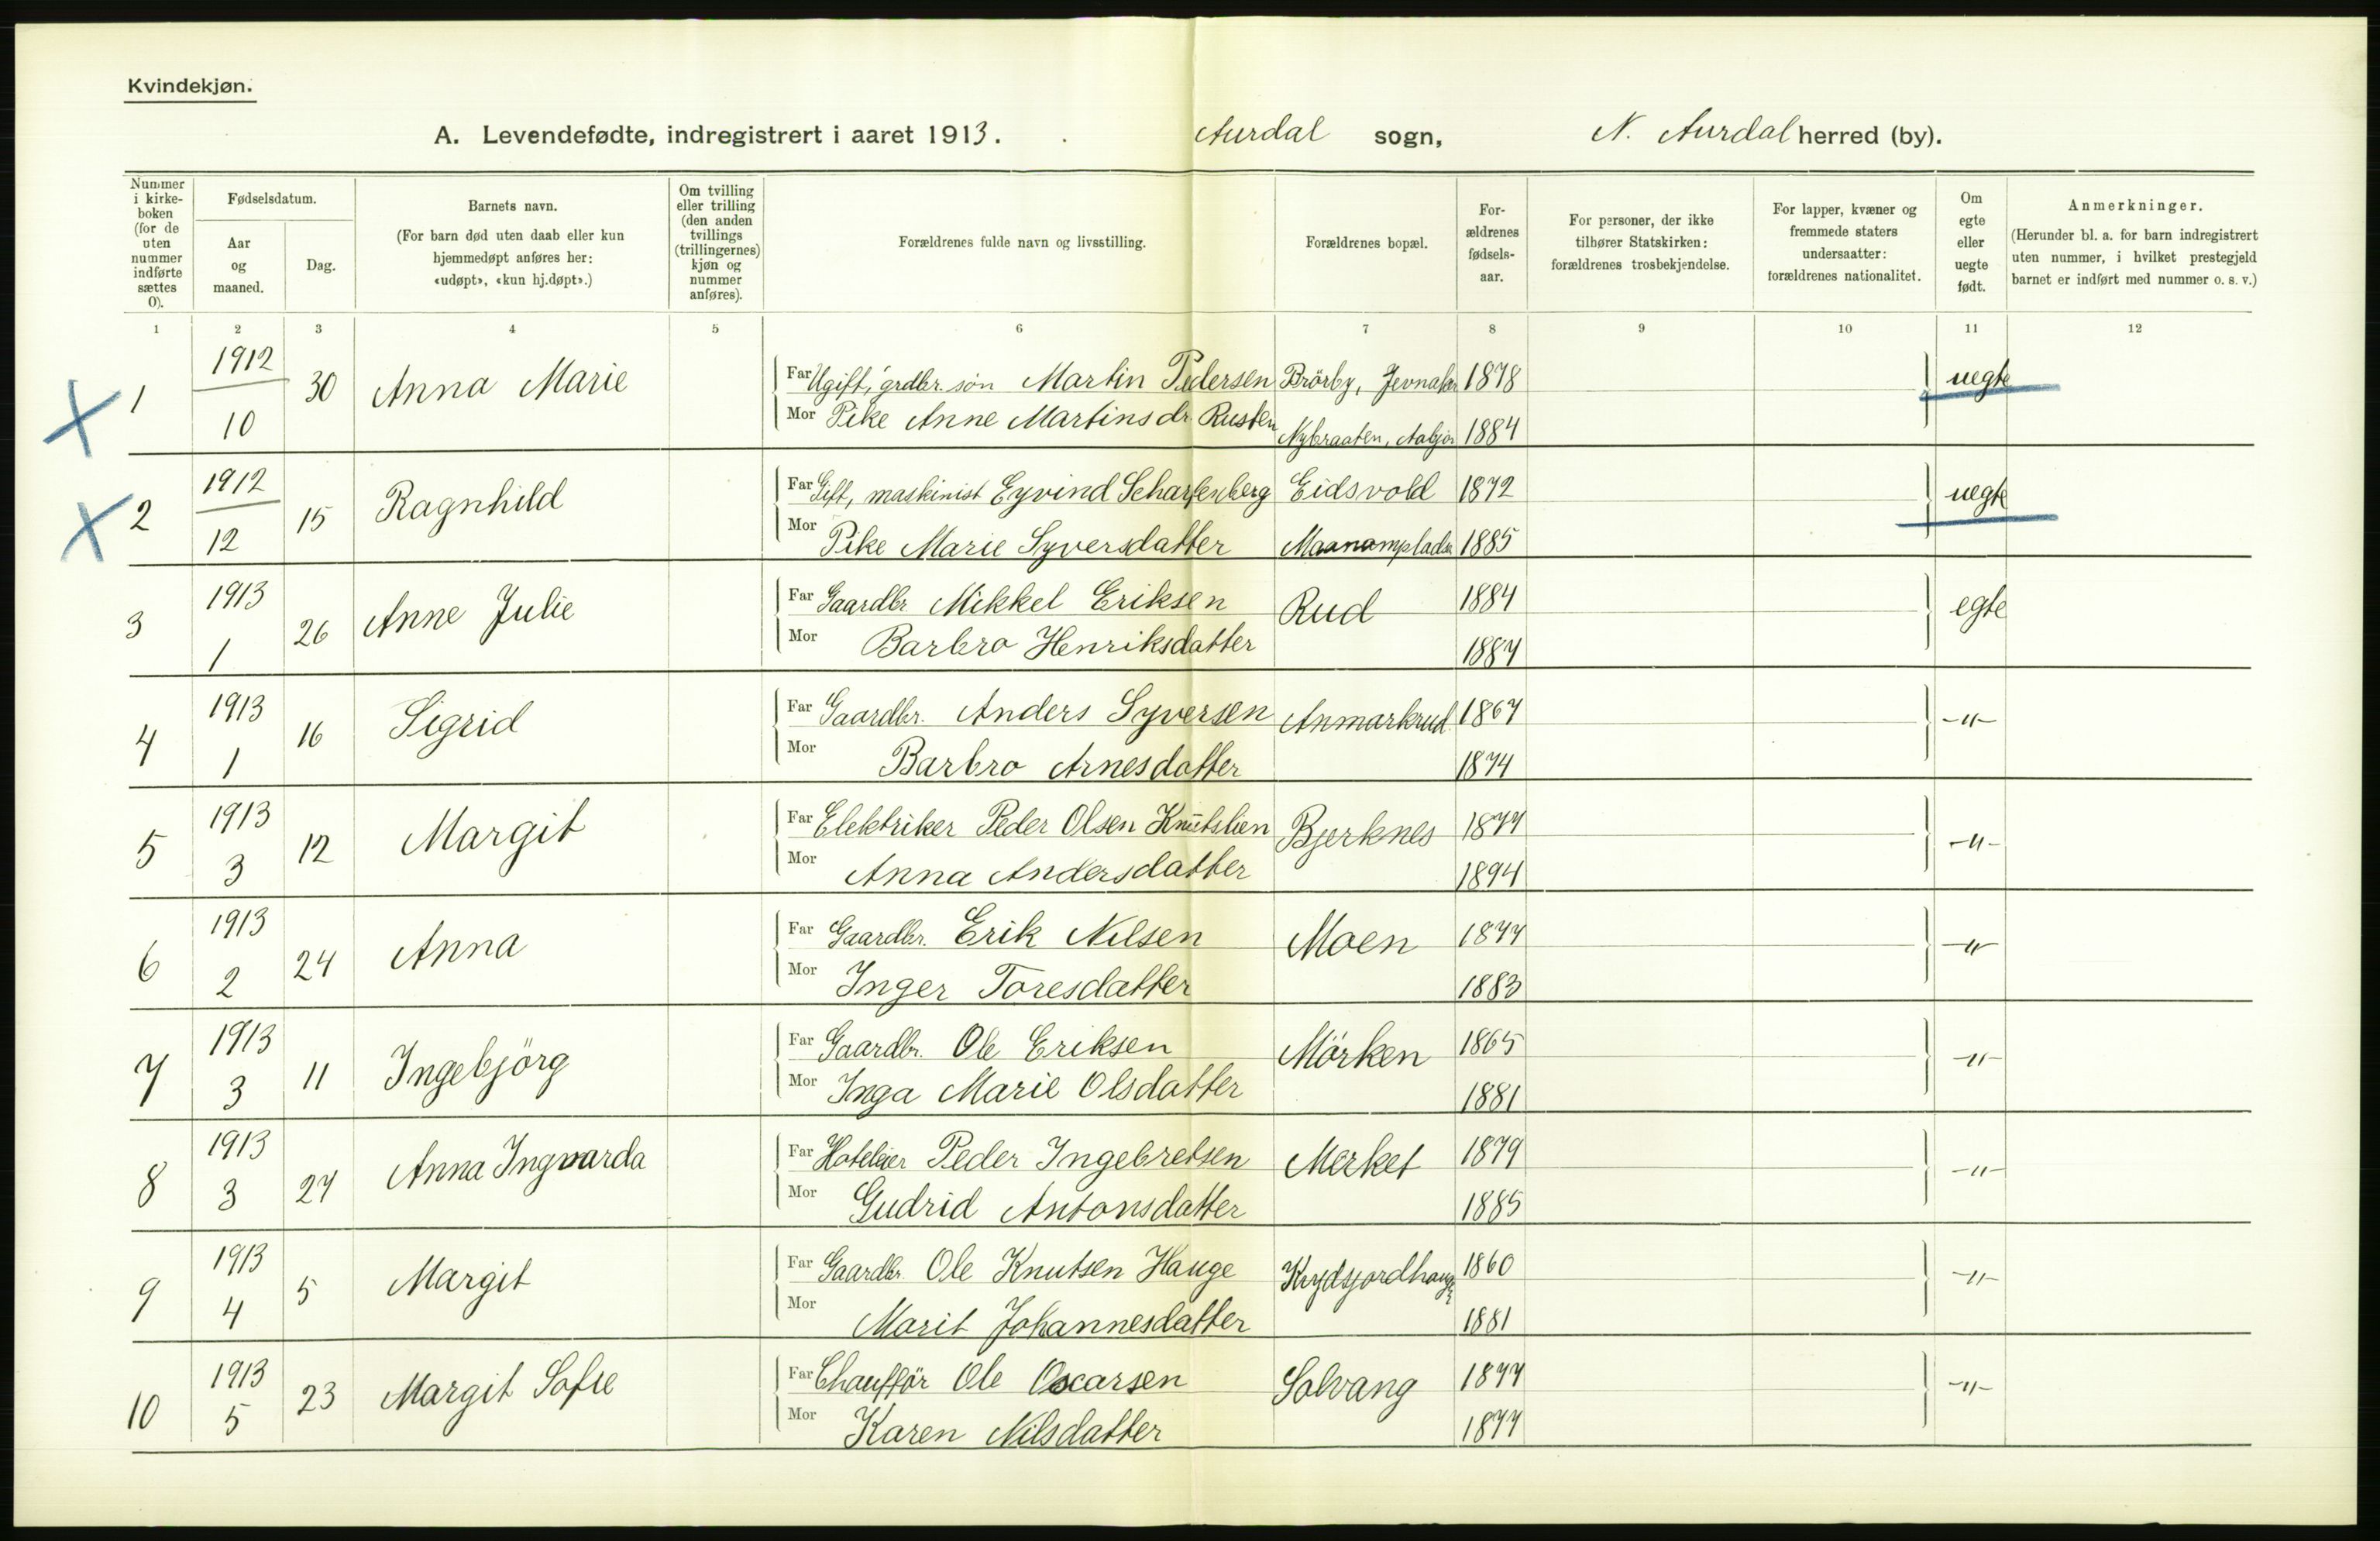 Kvindekjøn.
A. Levendefødte, indregistrert i aaret 1913. Aurdal sogn, N. Aurdal herred (by).
Nummer i kirke-boken (for de uten nummer indførte sættes 0).
Fødselsdatum.
Aar og maaned.
Dag.
Barnets navn.
(For barn død uten daab eller kun hjemmedøpt anføres her: «udøpt», «kun hj.døpt».)
Om tvilling eller trilling (den anden tvillings (trillingernes) kjøn og nummer anføres).
Forældrenes fulde navn og livsstilling.
Forældrenes bopæl.
For-ældrenes fødsels-aar.
For personer, der ikke tilhører Statskirken: forældrenes trosbekjendelse.
For lapper, kvæner og fremmede staters undersaatter: forældrenes nationalitet.
Om egte eller uegte født.
Anmerkninger.
(Herunder bl. a. for barn indregistrert uten nummer, i hvilket prestegjeld barnet er indført med nummer o. s. v.)
1 2 3 4 5 6 7 8 9 10 11 12
1 1912 10 30 Anna Marie Far Ugift, grdbr. søn Martin Pedersen Brörby, Jevnaker 1878 uegte
Mor Pike Anne Martinsdr. Rusten Nybraaten, Aabjør 1884
2 1912 12 15 Ragnhild Far Gift, maskinist Eyvind Scharfenberg Eidsvold 1872 uegte
Mor Pike Marie Syversdatter 1885
3 1913 1 26 Anne Julie Far Gaardbr Mikkel Eriksen Rud 1884 egte
Mor Barbro Henriksdatter 1887
4 1913 1 16 Sigrid Far Gaardbr. Anders Syversen Anmarkrud 1867 -"-
Mor Barbro Arnesdatter 1874
5 1913 3 12 Margit Far Elektriker Peder Olsen Knutslien Bjerknes 1877 -"-
Mor Anna Andersdatter 1894
6 1913 2 24 Anna Far Gaardbr. Erik Nilsen Moen 1877 -"-
Mor Inger Toresdatter 1883
7 1913 3 11 Ingebjörg Far Gaardbr. Ole Eriksen Mörken 1865 -"-
Mor Inga Marie Olsdatter 1881
8 1913 3 27 Anna Ingvarda Far Hoteleier Peder Ingebretsen Merket 1879 -"-
Mor Gudrid Antonsdatter 1885
9 1913 4 5 Margit Far Gaardbr. Ole Knutsen Hauge 1860 -"-
Mor Marit Johannesdatter 1881
10 1913 5 23 Margit Sofie Far Chaufför Ole Oscarsen Solvang 1877 -"-
Mor Karen Nilsdatter 1877